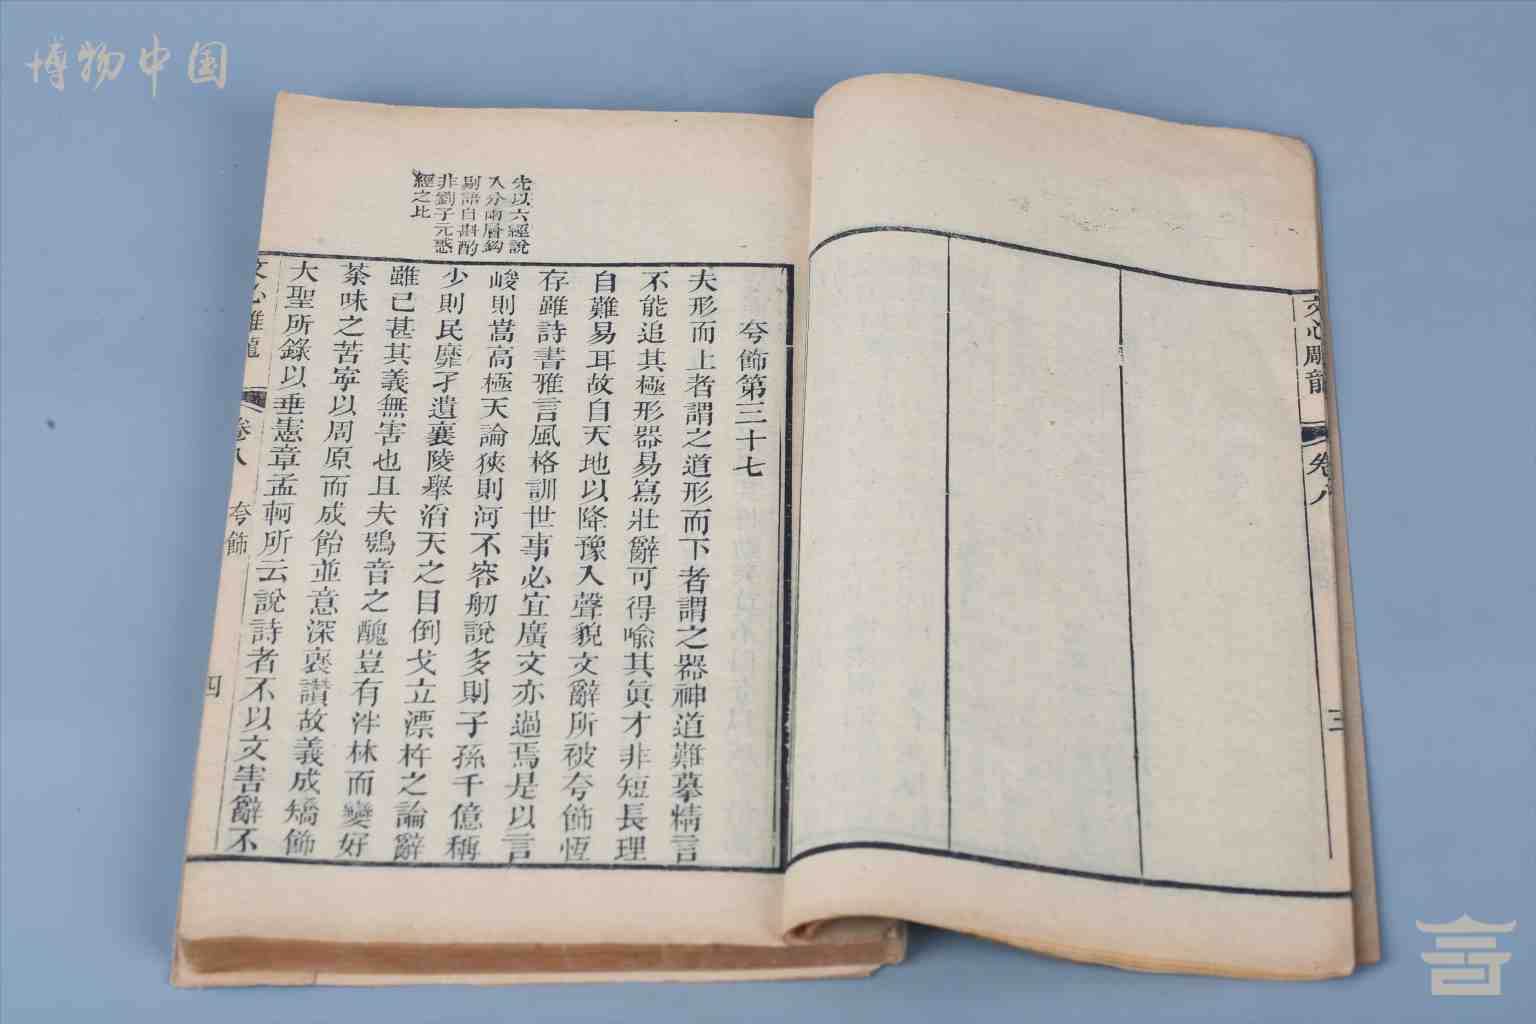 博物中国
文心雕龍
卷八
三
先以六經說
入分兩層鈎
剔語自斟酌
非劉子元惑
經之比
夸飾第三十七
夫形而上者謂之道形而下者謂之器神道難摹精言
不能追其極形器易寫壯辭可得喻其眞才非短長理
自難易耳故自天地以降豫入聲貌文辭所被夸飾恆
存雖詩書雅言風格訓世事必宜廣文亦過焉是以言
峻則嵩高極天論狹則河不容舠說多則子孫千億稱
少則民靡孑遺襄陵舉滔天之目倒戈立漂杵之論辭
雖已甚其義無害也且夫鴞音之醜豈有泮林而變好
荼味之苦寜以周原而成飴並意深襃讃故義成矯飾
大聖所錄以垂憲章孟軻所云說詩者不以文害辭不
文心雕龍
卷八
夸飾
四